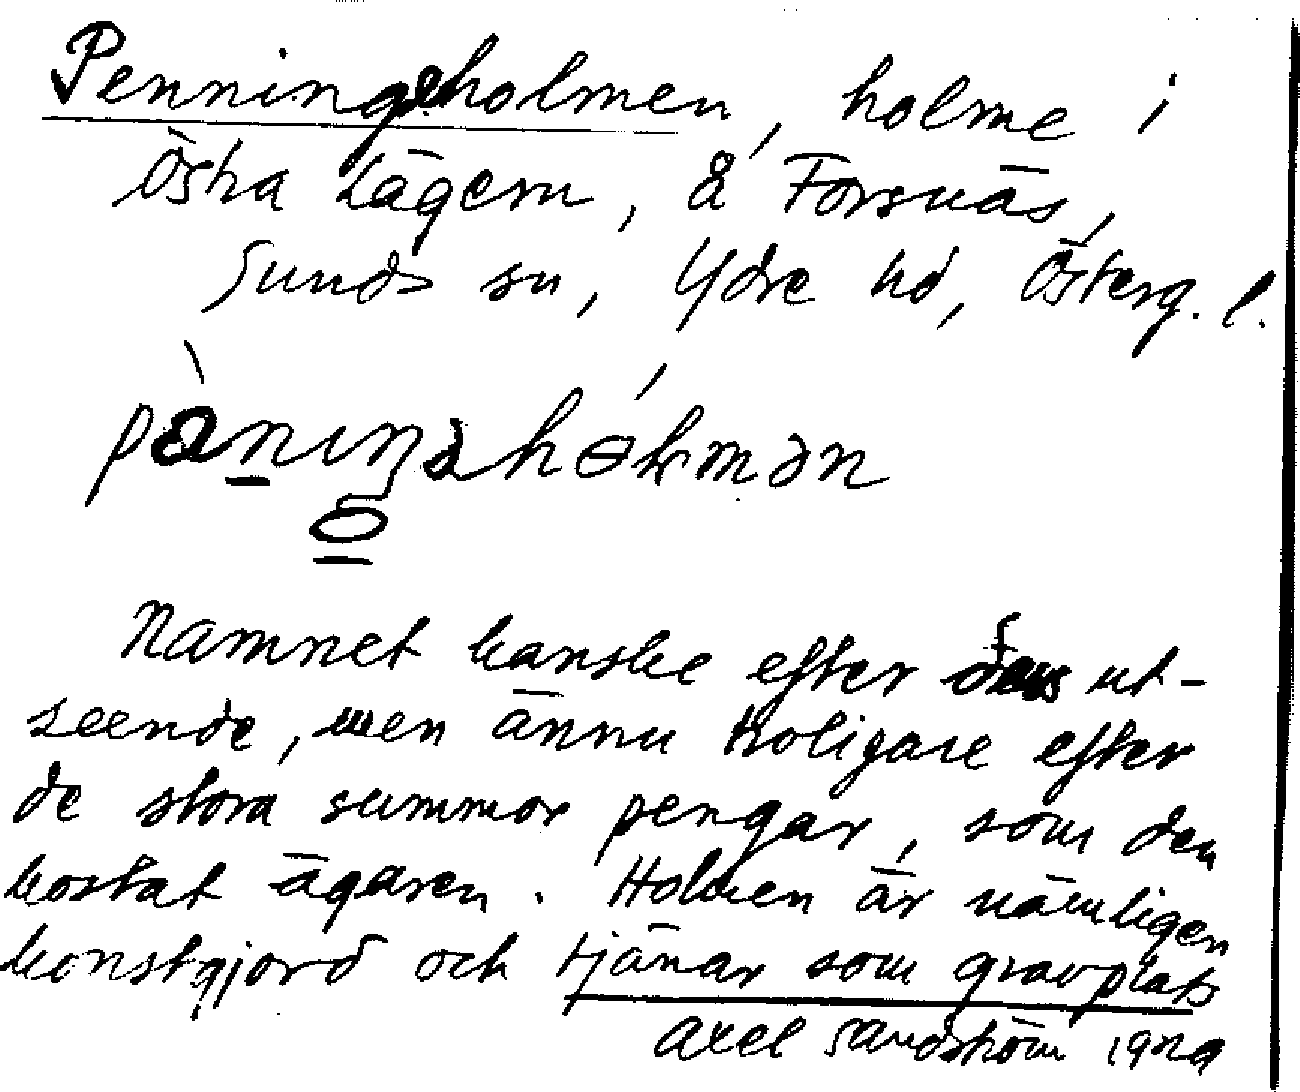 Penningeholmen, holme i
Östra Lägern, å Forsnäs,
Sunds sn, Ydre hd, Österg. l.
Namnet kanske efter dess ut-
seende, men ännu troligare efter
de stora summor pengar, som den
kostat ägaren. Holmen är nämligen
konstgjord och tjänar som gravplats
Axel Sandström 1929